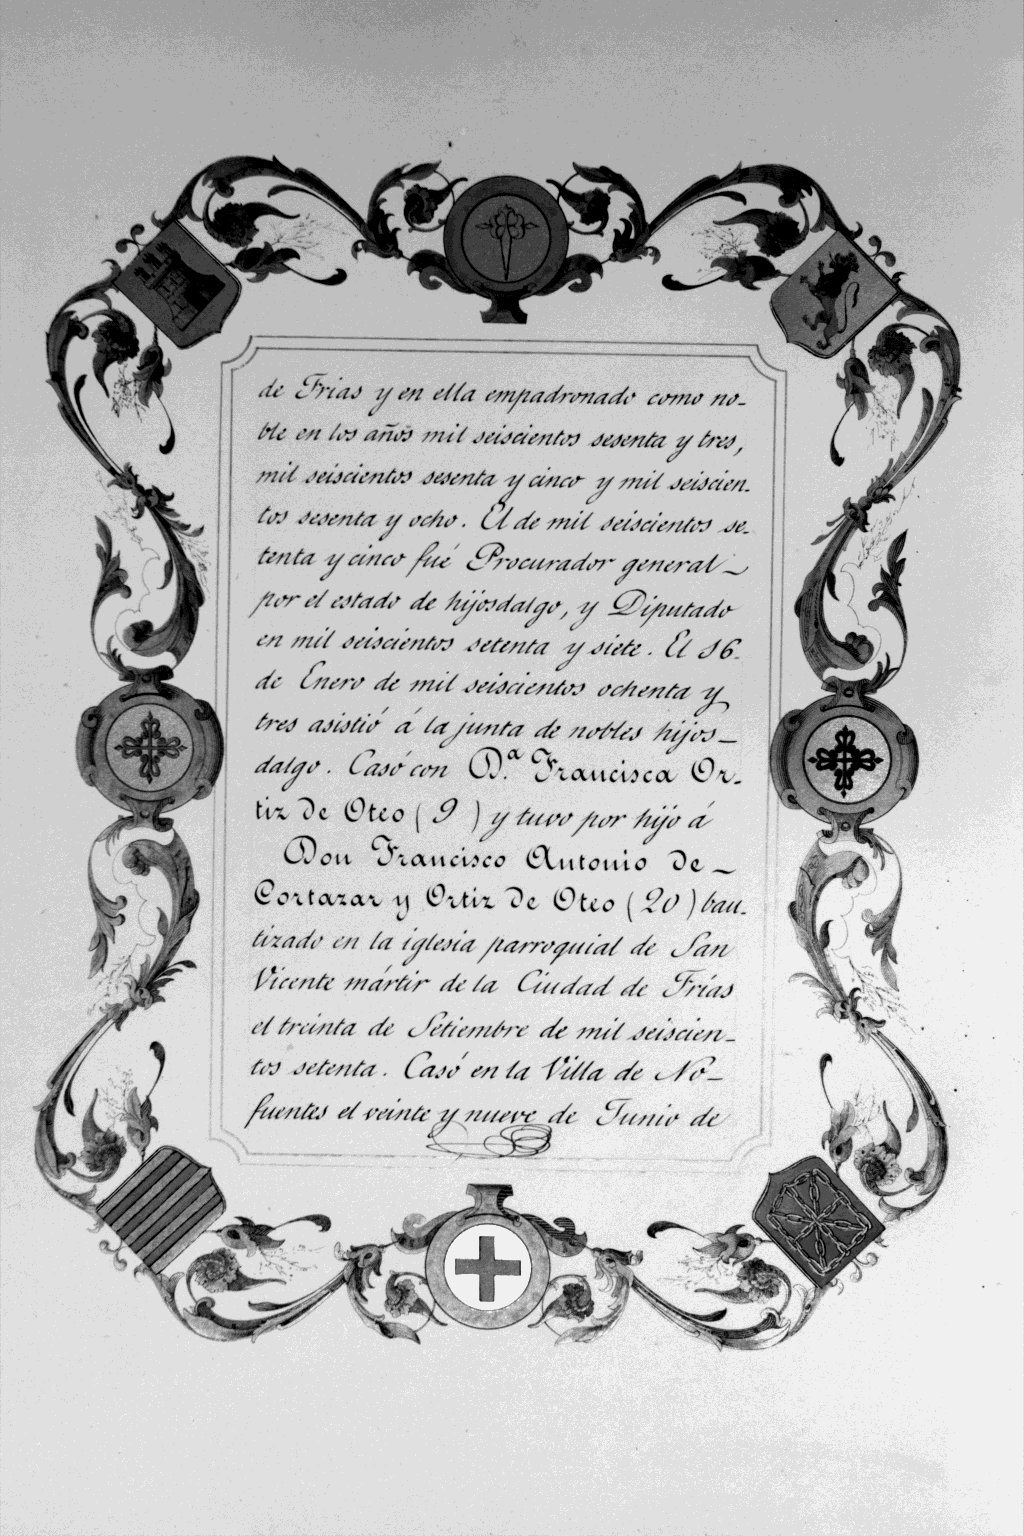 de Frias y en ella empadronado como no-
ble en los años mil seiscientos sesenta y tres,
mil seiscientos sesenta y cinco y mil seiscien-
tos sesenta y ocho. El de mil seiscientos se-
tenta y cinco fué Procurador general
por el estado de hijosdalgo, y Diputado
en mil seiscientos setenta y siete. El 16
de Enero de mil seiscientos ochenta y
tres asistió á la junta de nobles hijos-
dalgo. Casó con D.ª Francisca Or-
tiz de Oteo (9) y tuvo por hijo á
Don Francisco Antonio de
Cortazar y Ortiz de Oteo (20) bau-
tizado en la iglesia parroquial de San
Vicente mártir de la Ciudad de Frías
el treinta de Setiembre de mil seiscien-
tos setenta. Casó en la Villa de No-
fuentes el veinte y nueve de Junio de